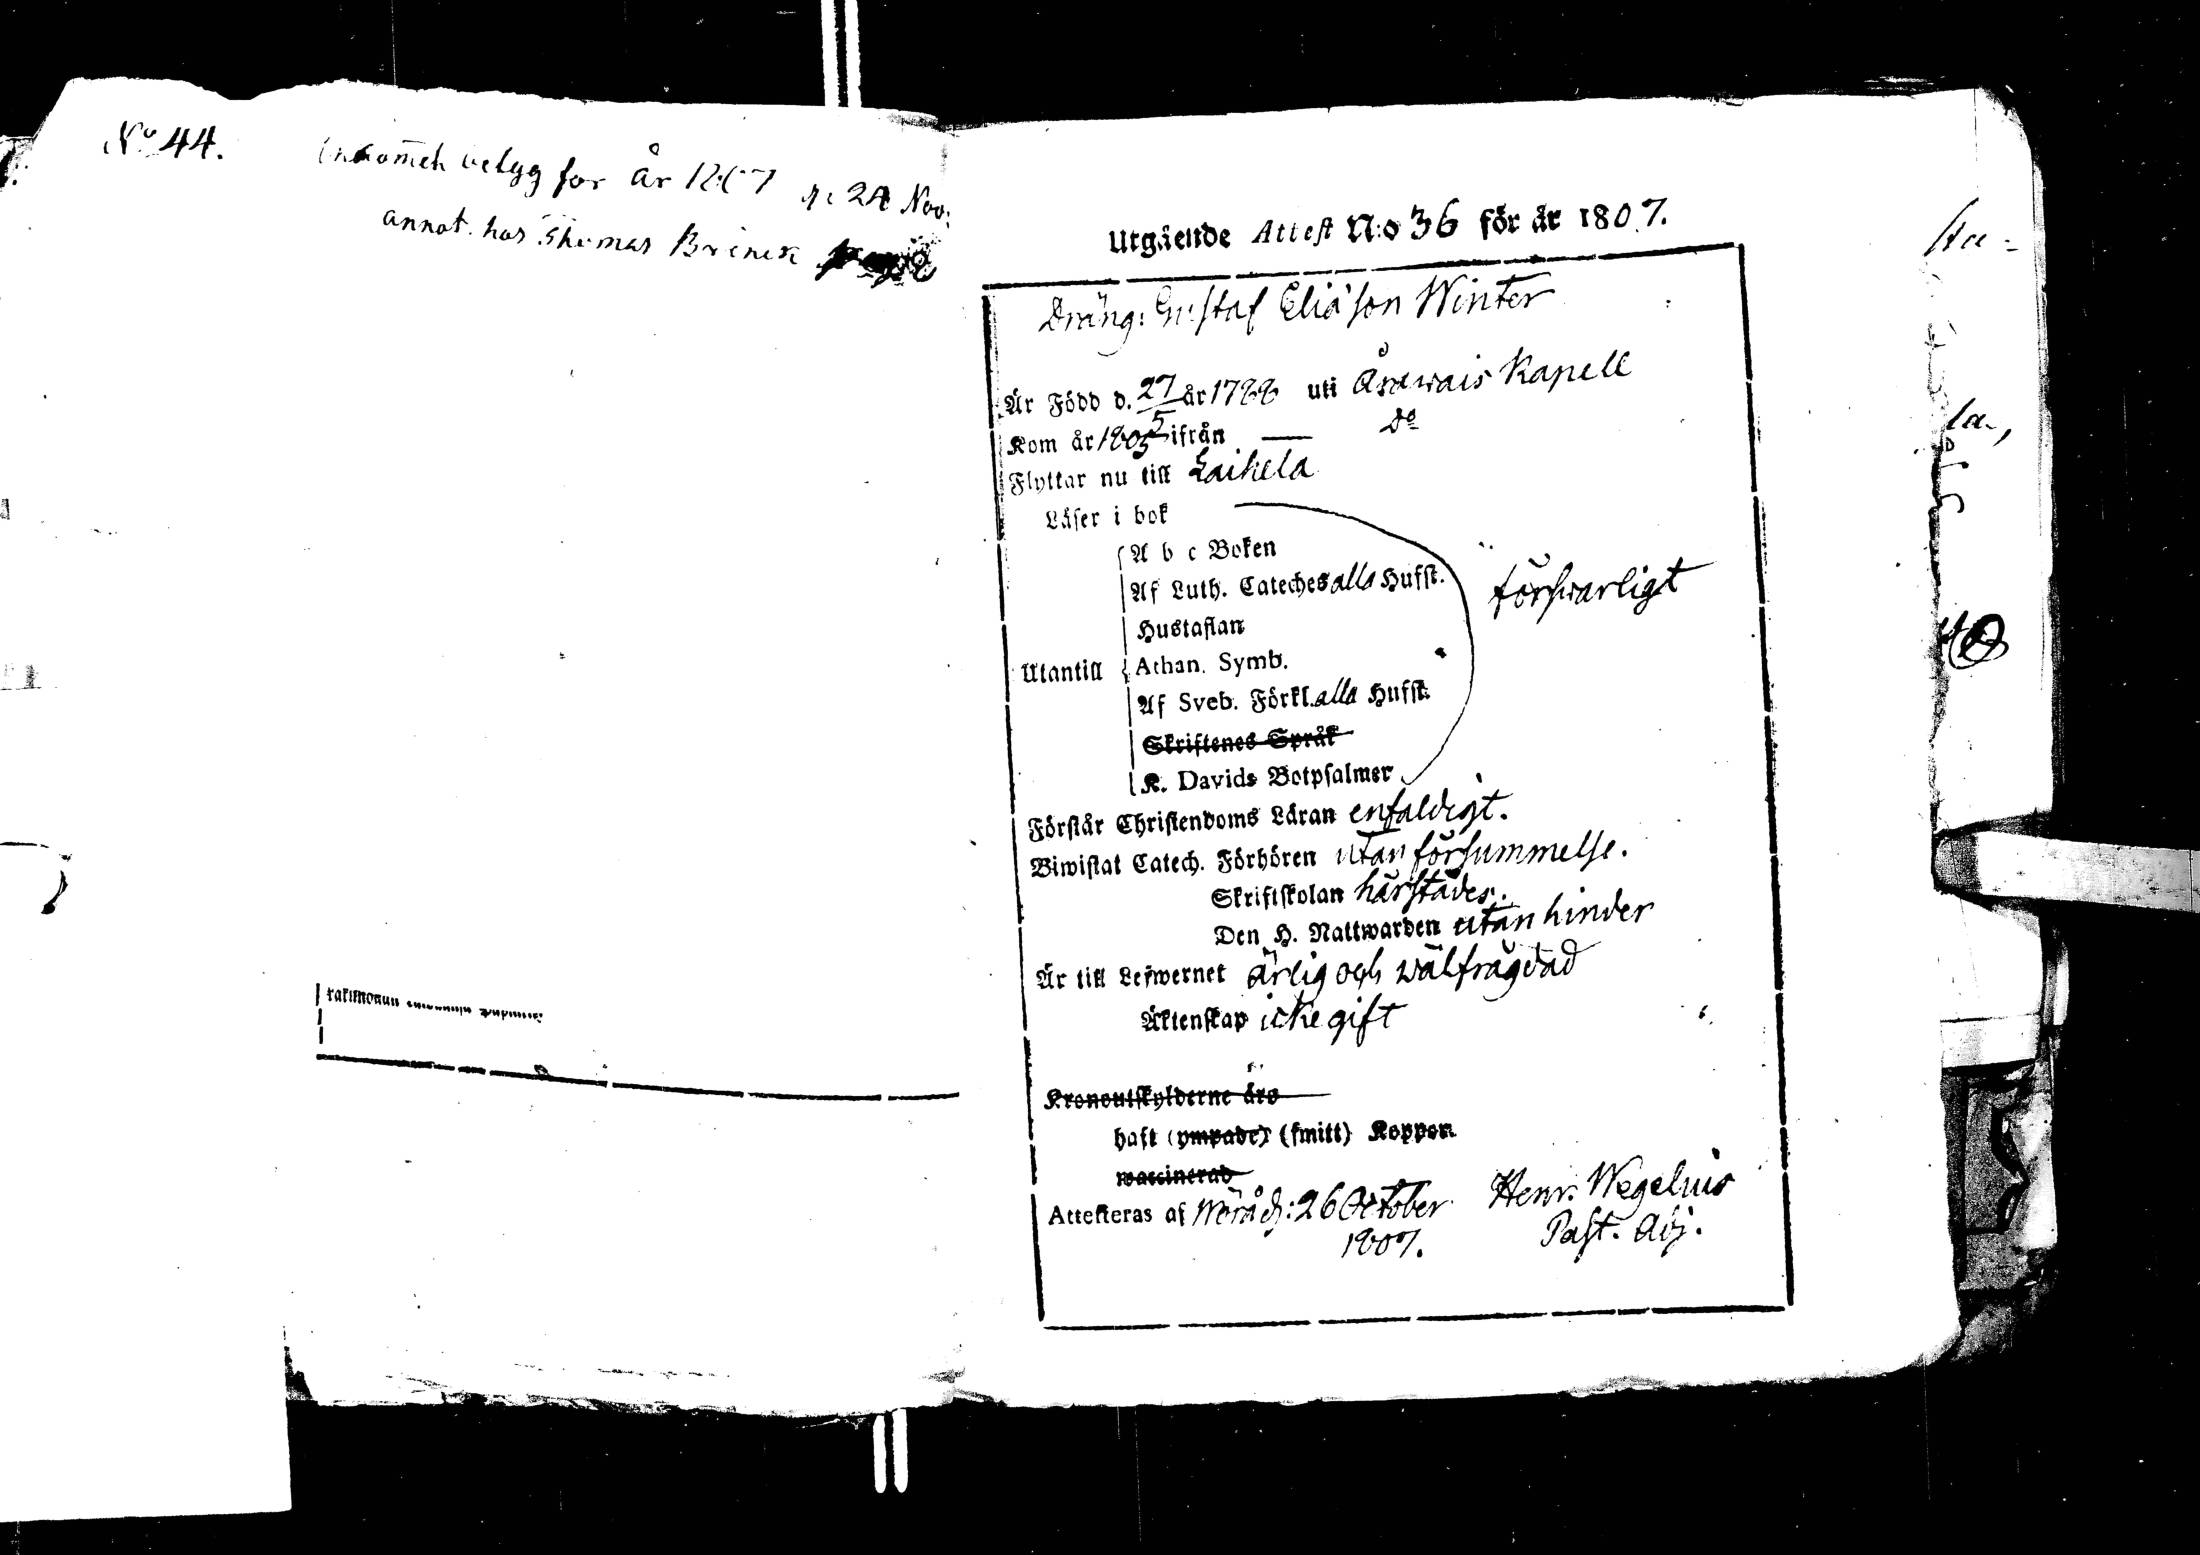 No 44.
Inkommen belyg for år 1807 d. 24 Nov.
annot. hos Thomas Brinck
Utgående Attest N:o 36 för år 1807.
Dräng: Gustaf Eliäson Winter
Är Född d. 27/5 år 1788 uti Årawais Kapell
Kom år 1805 ifrån — Do
Flyttar nu till Laihela
Läser i bok
A b c Boken
Af Luth. Cateches alla Hufst.
försvarligt
Hustaflan
Utantill
Athan. Symb.
Af Sveb. Förkl. alla Hufst.
Skriftenes Språk
K. Davids Botpsalmer
Förstår Christendoms Läran enfaldigt.
Biwistat Catech. Förhören utan försummelse.
Skriftskolan härstädes.
Den H. Nattwarden utan hinder
Är till Lefwernet ärlig och wälfrägdad
Äktenskap icke gift
Kronoutskylderne äro
haft (ympade) (smitt) Koppor
waccinerad
Attesteras af Wörå d: 26 October 1807.
Henr. Wegelius
Past. Adj.